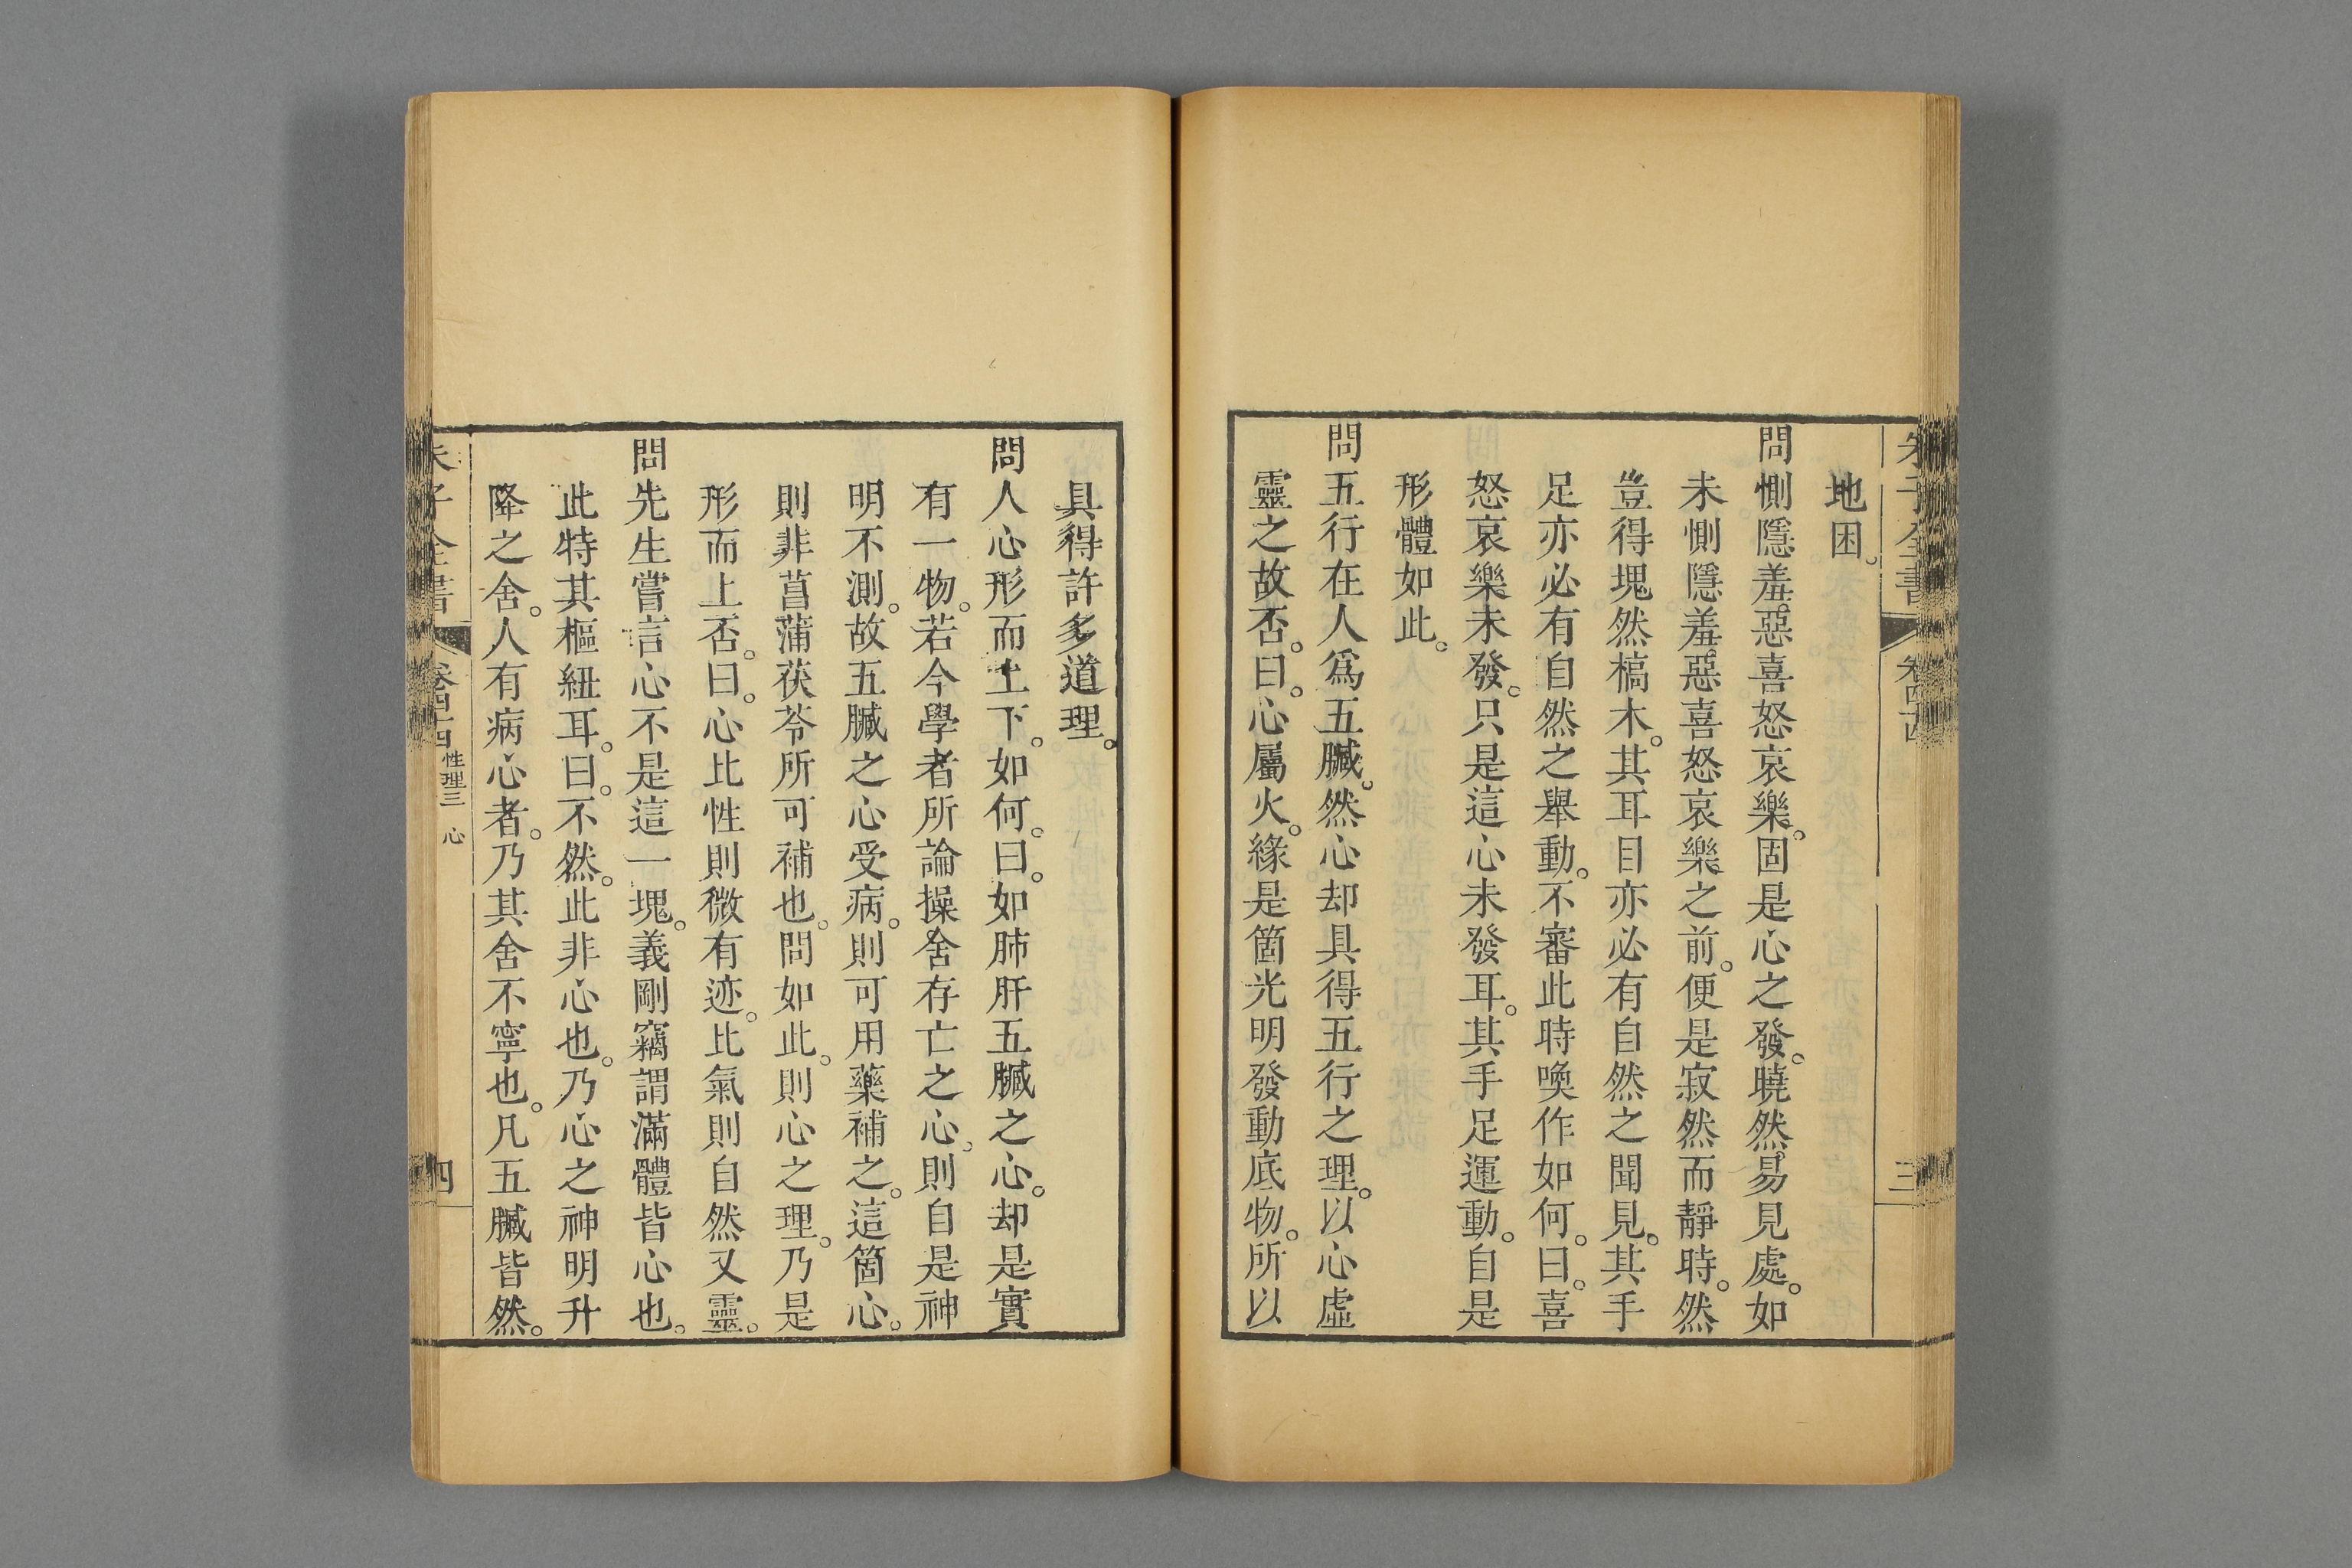 朱子全書 卷四十四 三
地困。
問惻隱羞惡喜怒哀樂。固是心之發。曉然易見處。如
未惻隱羞惡喜怒哀樂之前。便是寂然而靜時。然
豈得塊然槁木。其耳目亦必有自然之聞見。其手
足亦必有自然之舉動。不審此時喚作如何。曰。喜
怒哀樂未發。只是這心未發耳。其手足運動。自是
形體如此。
問五行在人爲五臟。然心却具得五行之理。以心虛
靈之故否。曰。心屬火。緣是箇光明發動底物。所以
具得許多道理。
問人心形而上下。如何。曰。如肺肝五臟之心。却是實
有一物。若今學者所論操舍存亡之心。則自是神
明不測。故五臟之心受病。則可用藥補之。這箇心。
則非菖蒲茯苓所可補也。問如此。則心之理。乃是
形而上否。曰。心比性則微有迹。比氣則自然又靈。
問先生嘗言心不是這一塊。義剛竊謂滿體皆心也。
此特其樞紐耳。曰。不然。此非心也。乃心之神明升
降之舍。人有病心者。乃其舍不寧也。凡五臟皆然。
朱子全書 卷四十四 性理三 心 四